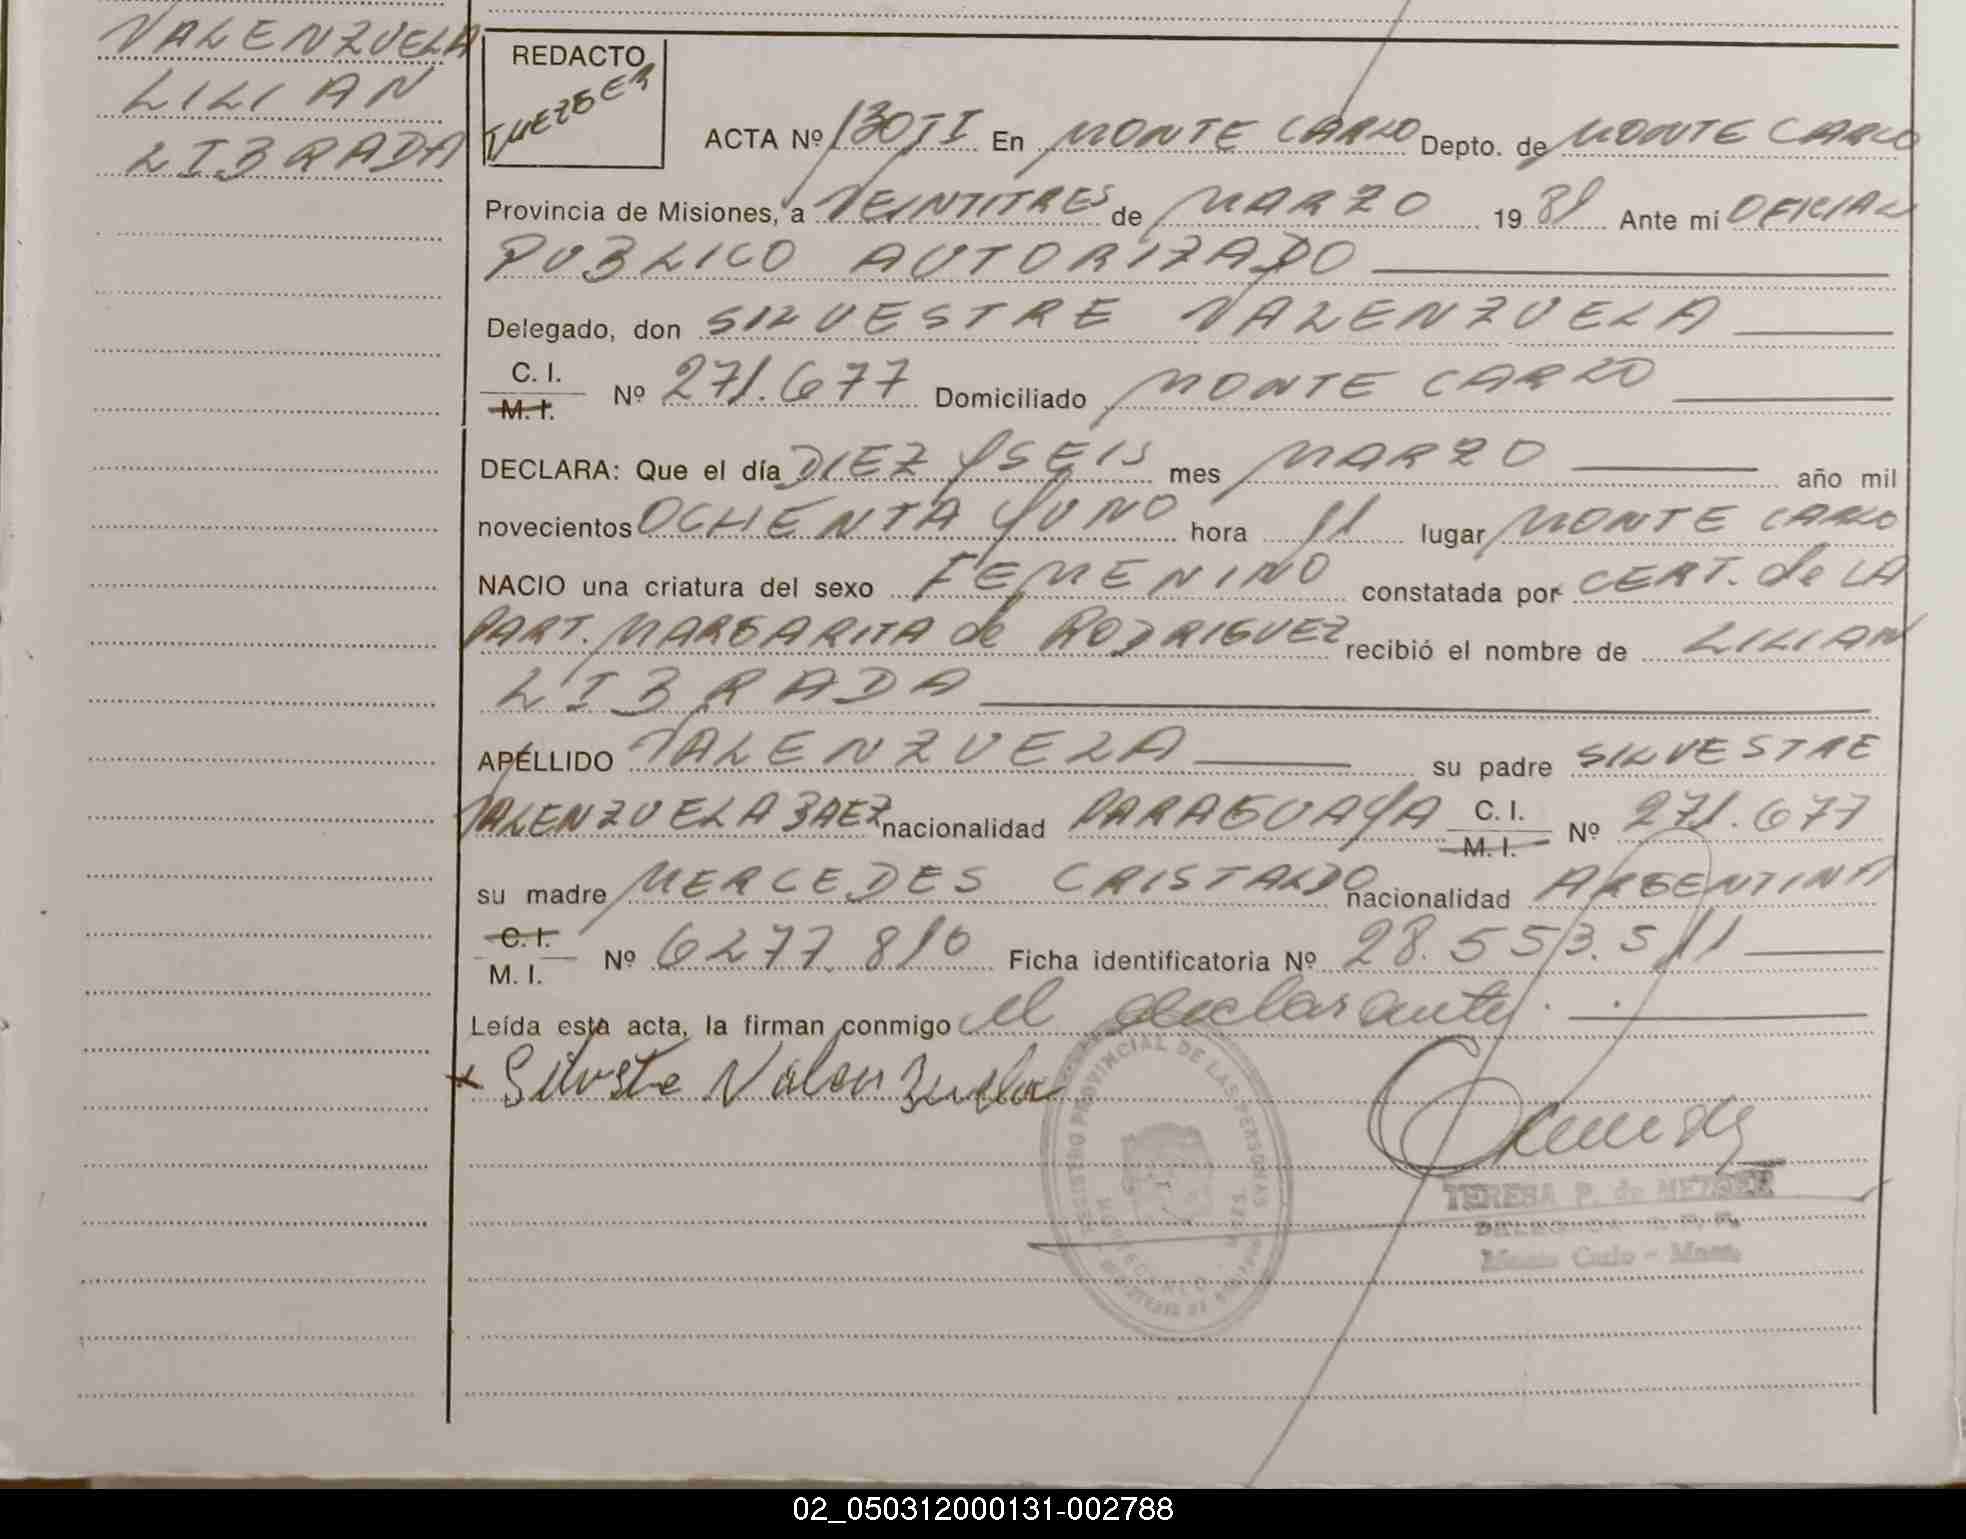 VALENZUELA
LILIAN
LIBRADA
REDACTO
ACTA Nº 130 TI En MONTE CARLO Depto. de MONTE CARLO
Provincia de Misiones, a VEINTITRES de MARZO 19 81 Ante mí OFICIAL
PUBLICO AUTORIZADO
Delegado, don SILVESTRE VALENZUELA
C. I.
M. I. Nº 271.677 Domiciliado MONTE CARLO
DECLARA: Que el día DIEZ Y SEIS mes MARZO año mil
novecientos OCHENTA Y UNO hora 11 lugar MONTE CARLO
NACIO una criatura del sexo FEMENINO constatada por CERT. de LA
PART. MARGARITA de RODRIGUEZ recibió el nombre de LILIAN
LIBRADA
APELLIDO VALENZUELA su padre SILVESTRE
VALENZUELA BAEZ nacionalidad PARAGUAYA C. I. M. I. Nº 271.677
su madre MERCEDES CRISTALDO nacionalidad ARGENTINA
C. I.
M. I. Nº 6277.810 Ficha identificatoria Nº 28.553.511
Leída esta acta, la firman conmigo el declarante.
x Silvestre Valenzuela
REGISTRO PROVINCIAL DE LAS PERSONAS
MONTECARLO - MNES.
TERESA P. de METZGER
DELEGADA R. P. P.
Monte Carlo - Mnes.
02_050312000131-002788